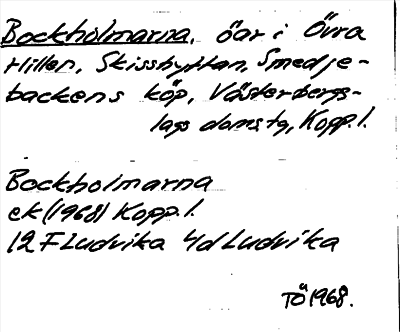 Bockholmarna, öar i Övra
Hillen, Skisshyttan, Smedje-
backens köp, Västerbergs-
lags doms.tg, Kopp.l.
Bockholmarna
ek (1968) Kopp.l.
12 F Ludvika 4d Ludvika
TÖ 1968.